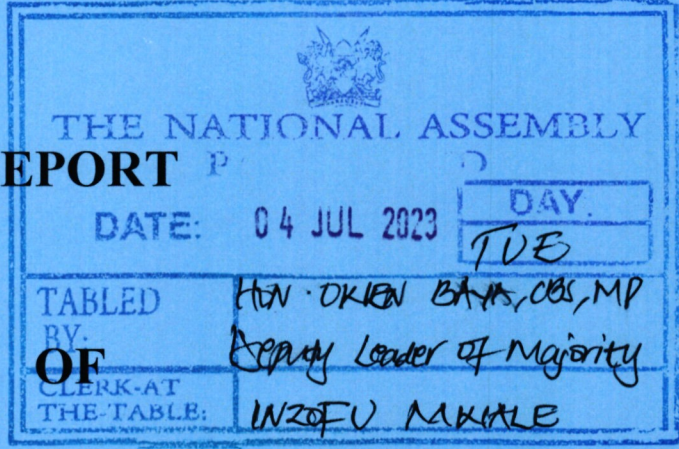 THE NATIONAL ASSEMBLY
EPORT P D
DATE: 04 JUL 2023 DAY.
TUE
TABLED BY: HON. BAYA, CBS, MP
Deputy Leader of Majority
OF
CLERK-AT THE-TABLE: INZOFU